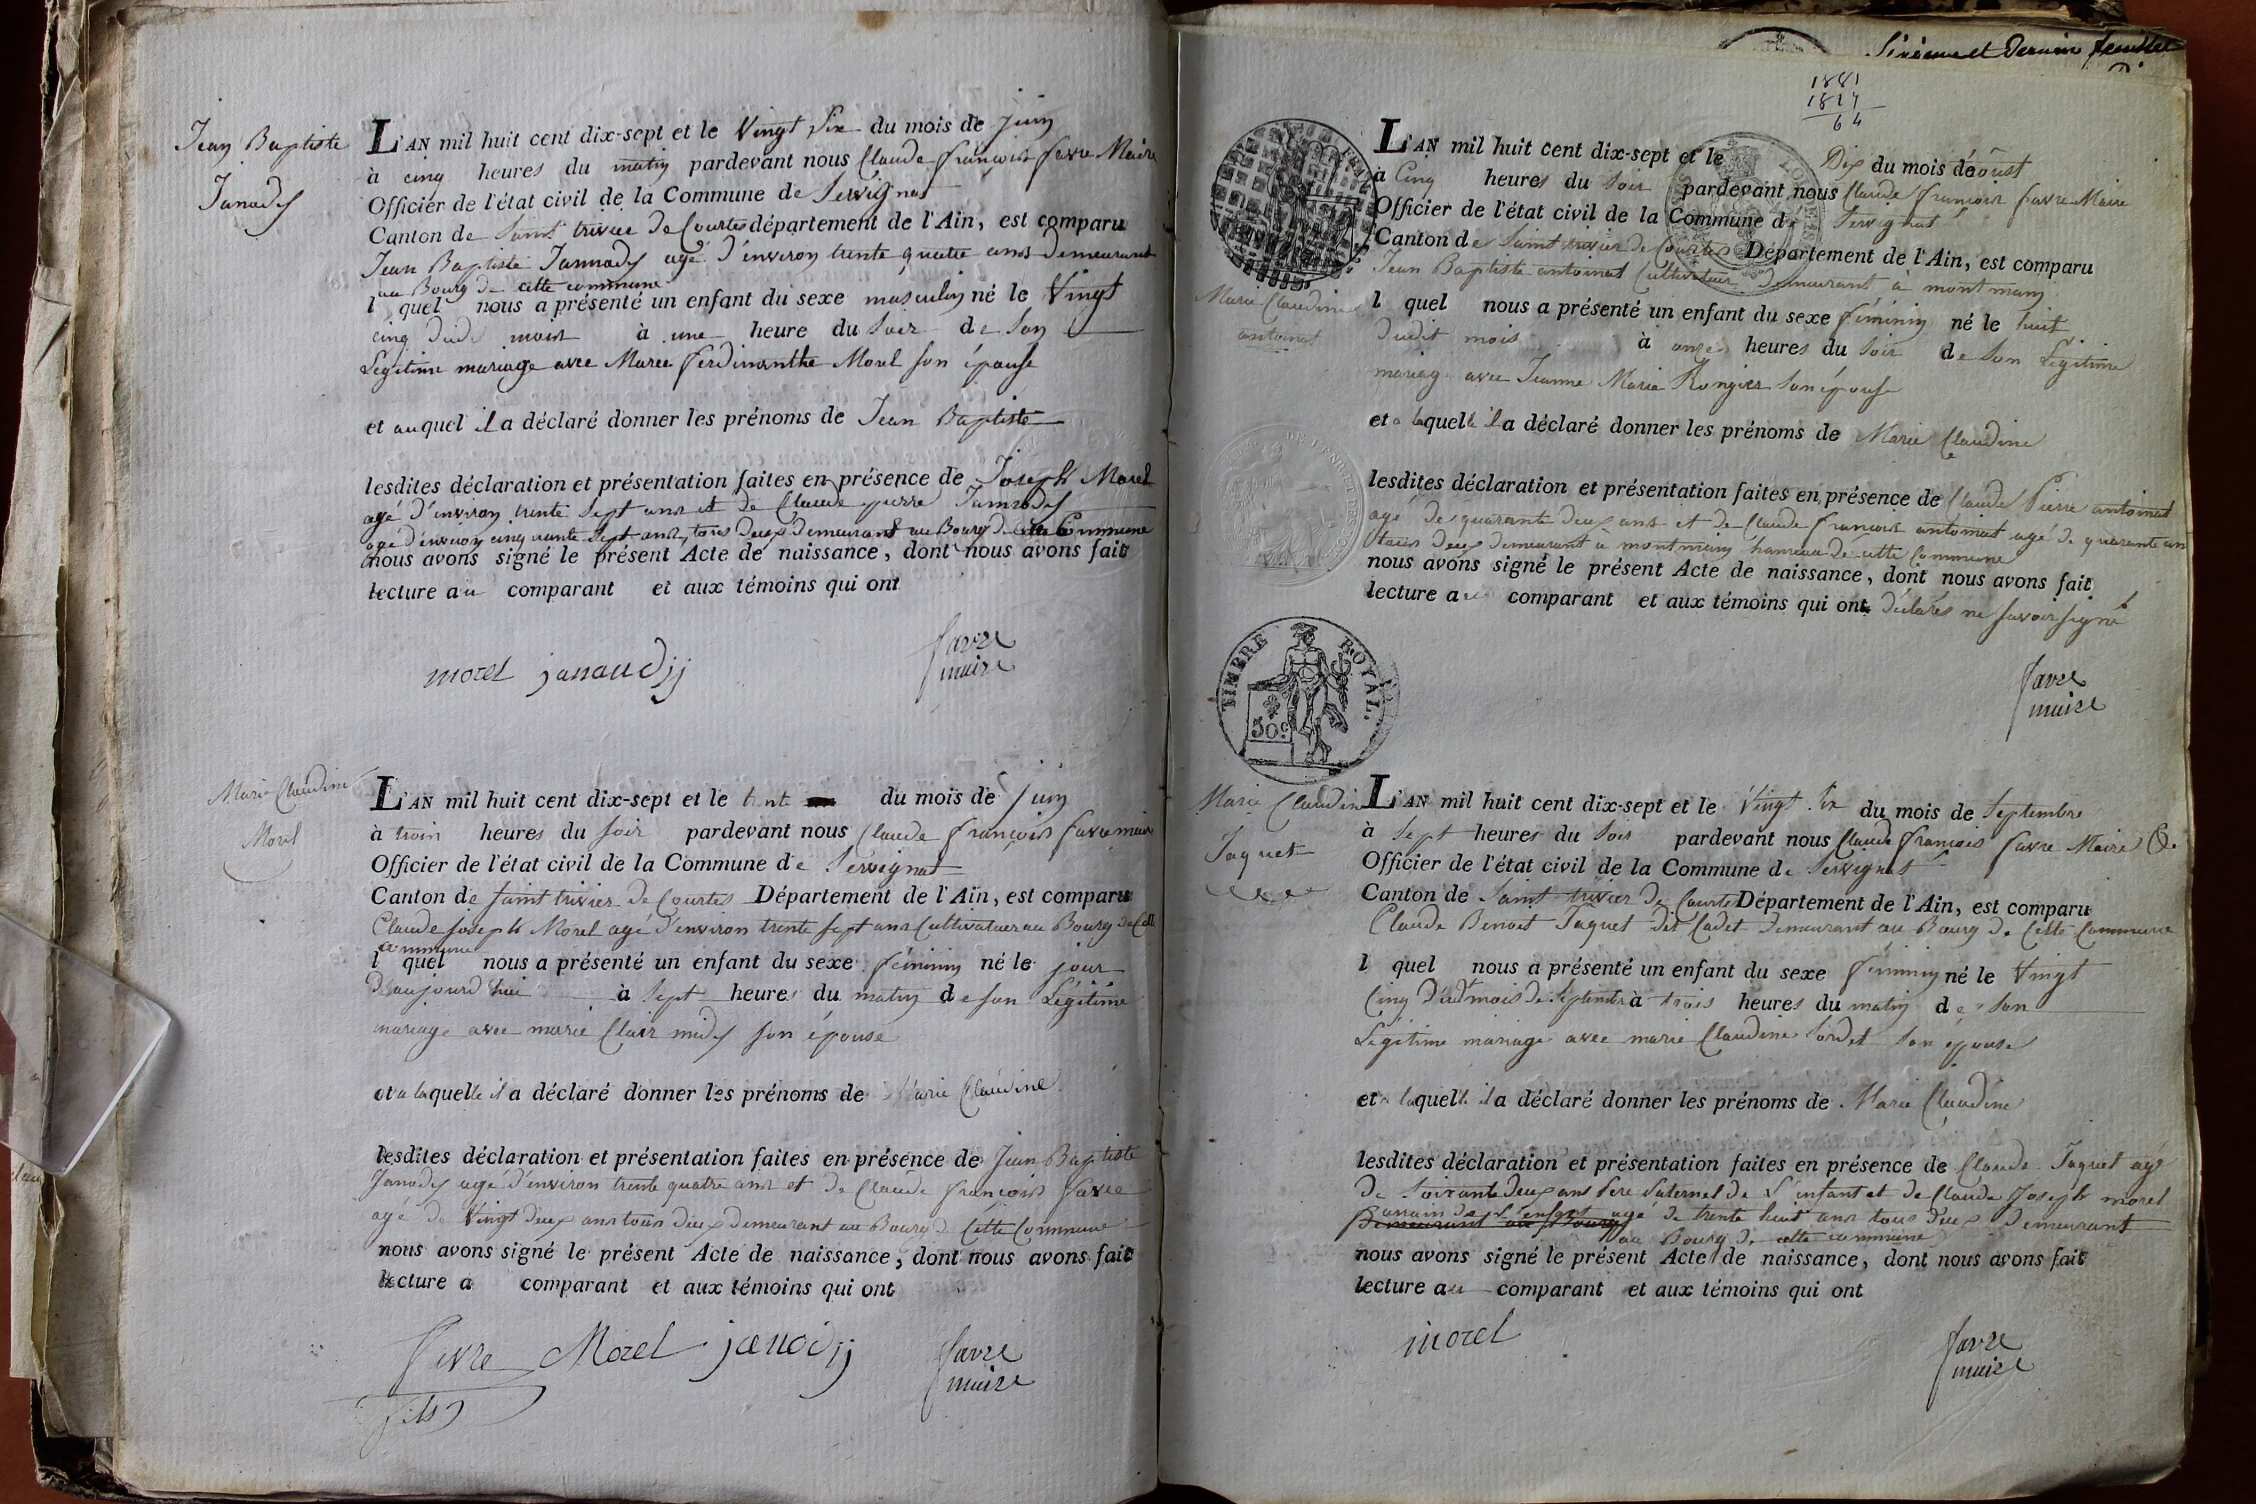 Jean Baptiste
Janody
L'AN mil huit cent dix-sept et le Vingt Six du mois de juin
à cinq heures du matin pardevant nous Claude françois favre Maire
Officier de l'état civil de la Commune de Servignat
Canton de Saint trivier De Courtes département de l'Ain, est comparu
Jean Baptiste Jannody agé d'environ trente quatre ans Demeurant
au Bourg de cette commune
l quel nous a présenté un enfant du sexe masculin né le Vingt
cinq dudit mois à une heure du Soir de Son
Légitime mariage avec Marie ferdinanthe Morel son épouse
et auquel il a déclaré donner les prénoms de Jean Baptiste
lesdites déclaration et présentation faites en présence de Joseph Morel
agé d'environ trente Sept ans et de Claude pierre Jannody
agé d'environ cinquante Sept ans, tous Deux demeurant au Bourg de cette Commune
nous avons signé le présent Acte de naissance, dont nous avons fait
lecture au comparant et aux témoins qui ont
morel janaudy
favre
maire
Marie Claudine
Morel
L'AN mil huit cent dix-sept et le trente du mois de juin
à trois heures du Soir pardevant nous Claude françois favre maire
Officier de l'état civil de la Commune de Servignat
Canton de Saint trivier de Courtes Département de l'Ain, est comparu
Claude Joseph Morel agé d'environ trente sept ans Cultivateur au Bourg de Cette
commune
l quel nous a présenté un enfant du sexe féminin né le jour
D'aujourd'hui à Sept heures du matin de son Légitime
mariage avec marie Clair midy son épouse
et a laquelle il a déclaré donner les prénoms de Marie Claudine
lesdites déclaration et présentation faites en présence de Jean Baptiste
Janody agé d'environ trente quatre ans et de Claude françois favre
agé de Vingt deux ans tous deux demeurant au Bourg de Cette Commune
nous avons signé le présent Acte de naissance, dont nous avons fait
lecture a comparant et aux témoins qui ont
favre Morel janody
fils
favre
maire
Sixieme et Dernier feuillet
1881
1817
64
L'AN mil huit cent dix-sept et le Dix du mois d'août
à Cinq heures du Soir pardevant nous Claude françois favre Maire
Officier de l'état civil de la Commune de Servignat
Canton de Saint trivier de Courtes Département de l'Ain, est comparu
Jean Baptiste antoinat Cultivateur Demeurant à montmain
Marie Claudine
antoinat
l quel nous a présenté un enfant du sexe féminin né le huit
Dudit mois à onze heures du Soir de Son Légitime
mariage avec Jeanne Marie Rongier Son épouse
et a laquelle il a déclaré donner les prénoms de Marie Claudine
lesdites déclaration et présentation faites en présence de Claude Pierre antoinat
agé de quarante deux ans et de Claude françois antoinat agé de quarante ans
tous deux demeurant a montmain hameau de cette Commune
nous avons signé le présent Acte de naissance, dont nous avons fait
lecture au comparant et aux témoins qui ont déclarés ne savoir signé
favre
maire
TIMBRE ROYAL.
50c
Marie Claudine
Jaquet
L'AN mil huit cent dix-sept et le Vingt Six du mois de Septembre
à Sept heures du Soir pardevant nous Claude françois favre Maire &c
Officier de l'état civil de la Commune de Servignat
Canton de Saint trivier De Courtes Département de l'Ain, est comparu
Claude Benoit Jaquet dit Cadet Demeurant au Bourg de Cette Commune
l quel nous a présenté un enfant du sexe féminin né le Vingt
Cinq Dudt mois de Septembre à trois heures du matin de son
Légitime mariage avec marie Claudine Sordet Son épouse
et a laquelle il a déclaré donner les prénoms de Marie Claudine
lesdites déclaration et présentation faites en présence de Claude Jaquet agé
De Soixante deux ans Pere Paternel de L'enfant et de Claude Joseph morel
Parrain de L'enfant agé de trente huit ans tous deux Demeurant
Demeurant au Bourg
au Bourg de cette commune
nous avons signé le présent Acte de naissance, dont nous avons fait
lecture au comparant et aux témoins qui ont
morel
favre
maire